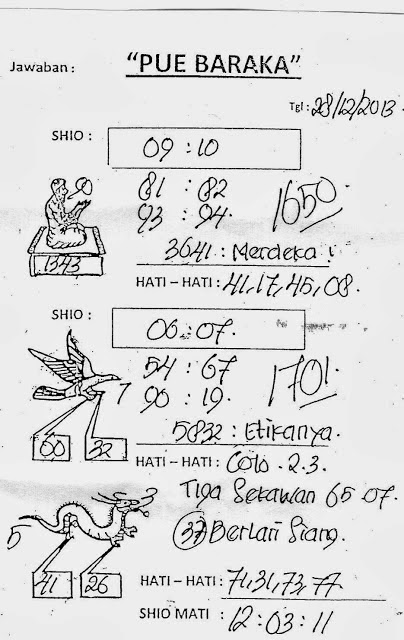 Jawaban : "PUE BARAKA"
Tgl : 28/12/2013
SHIO : 09 : 10
81 : 82
93 : 94.
1650
1343
3641 : Merdeka !
HATI – HATI : 41,17,45,08.
SHIO : 06 : 07.
54 : 67
90 : 19.
1701.
7
60 32
5832 : Etikanya.
HATI – HATI : Colo . 2.3.
Tiga Sekawan 65.07.
37 Berlari Siang.
3
5
41 26
HATI – HATI : 71,31,73,77
SHIO MATI : 12 : 03 : 11